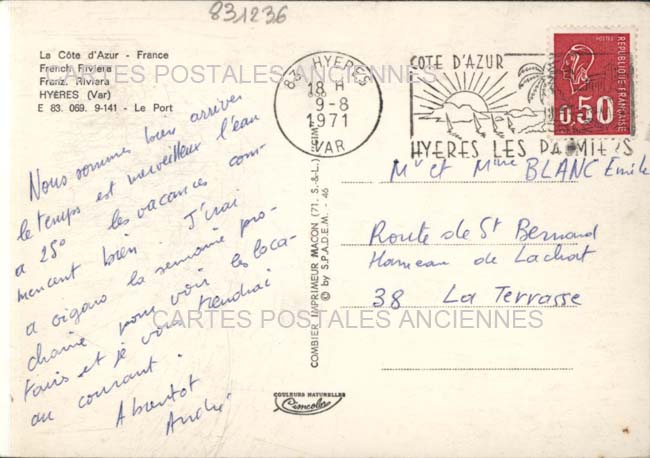 831236
La Côte d'Azur - France
French Riviera
Franz. Riviera
HYÈRES (Var)
E 83. 069. 9-141 - Le Port
83 HYERES
18 H
9-8
1971
VAR
COTE D'AZUR
HYERES LES PALMIERS
REPUBLIQUE FRANÇAISE
0,50
CARTES POSTALES ANCIENNES
Nous sommes bien arrivés
le temps est merveilleux l'eau
a 25° les vacances com-
mencent bien. J'irai
a vigaro la semaine pro-
chaine pour voir les loca-
tairs et je vous tiendrai
au courant.
A bientot
André
COMBIER IMPRIMEUR MACON (71. S.-&-L.) "CIM"
© by S.P.A.D.E.M. - 46
Mr et Mme BLANC Emile
Route de St Bernard
Hameau de Lachat
38 La Terrasse
CARTES POSTALES ANCIENNES
COULEURS NATURELLES
Cimcolor